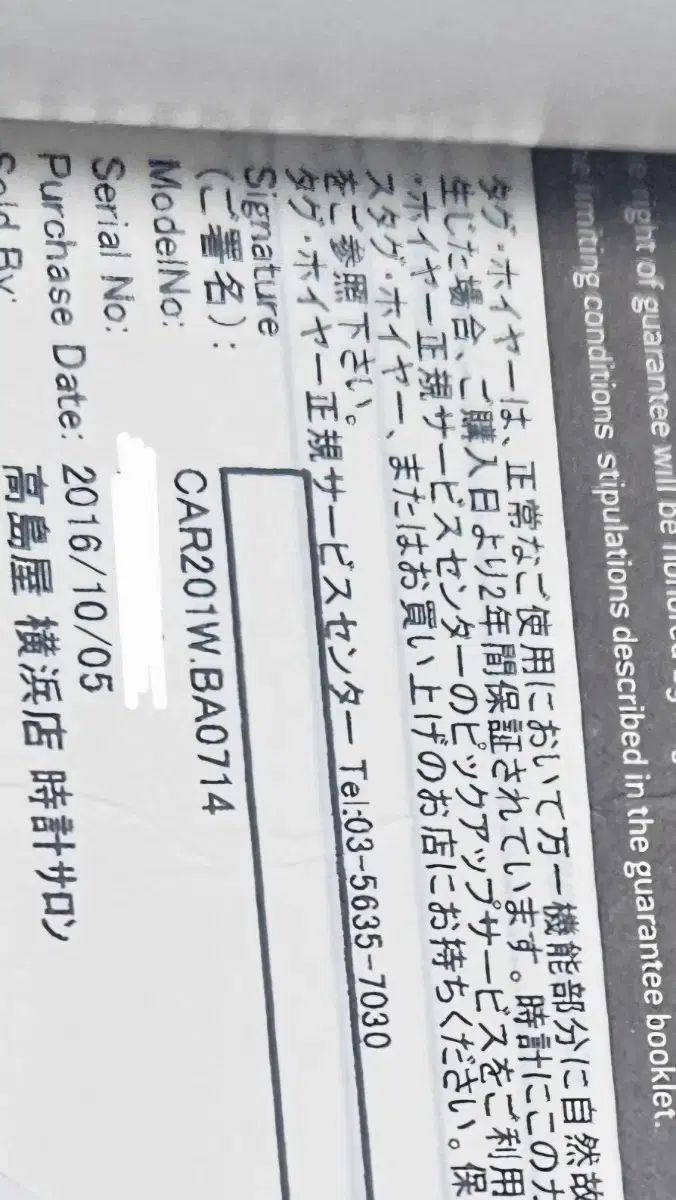 e right of guarantee will be honored
e limiting conditions stipulations described in the guarantee booklet.
タグ・ホイヤーは、正常なご使用において万一機能部分に自然故
生じた場合、ご購入日より2年間保証されています。時計にこの
・ホイヤー正規サービスセンターのピックアップサービスをご利用
スタグ・ホイヤー、またはお買い上げのお店にお持ちください。保
をご参照下さい。
タグ・ホイヤー正規サービスセンター Tel:03-5635-7030
Signature
(ご署名):
ModelNo: CAR201W.BA0714
Serial No:
Purchase Date: 2016/10/05
Sold By: 高島屋 横浜店 時計サロン